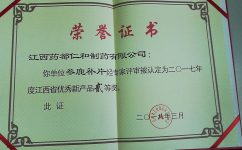 荣誉证书
江西药都仁和制药有限公司：
你单位参鹿补片经专家评审被认定为二〇一七年
度江西省优秀新产品贰等奖。
此证
二〇一八年三月